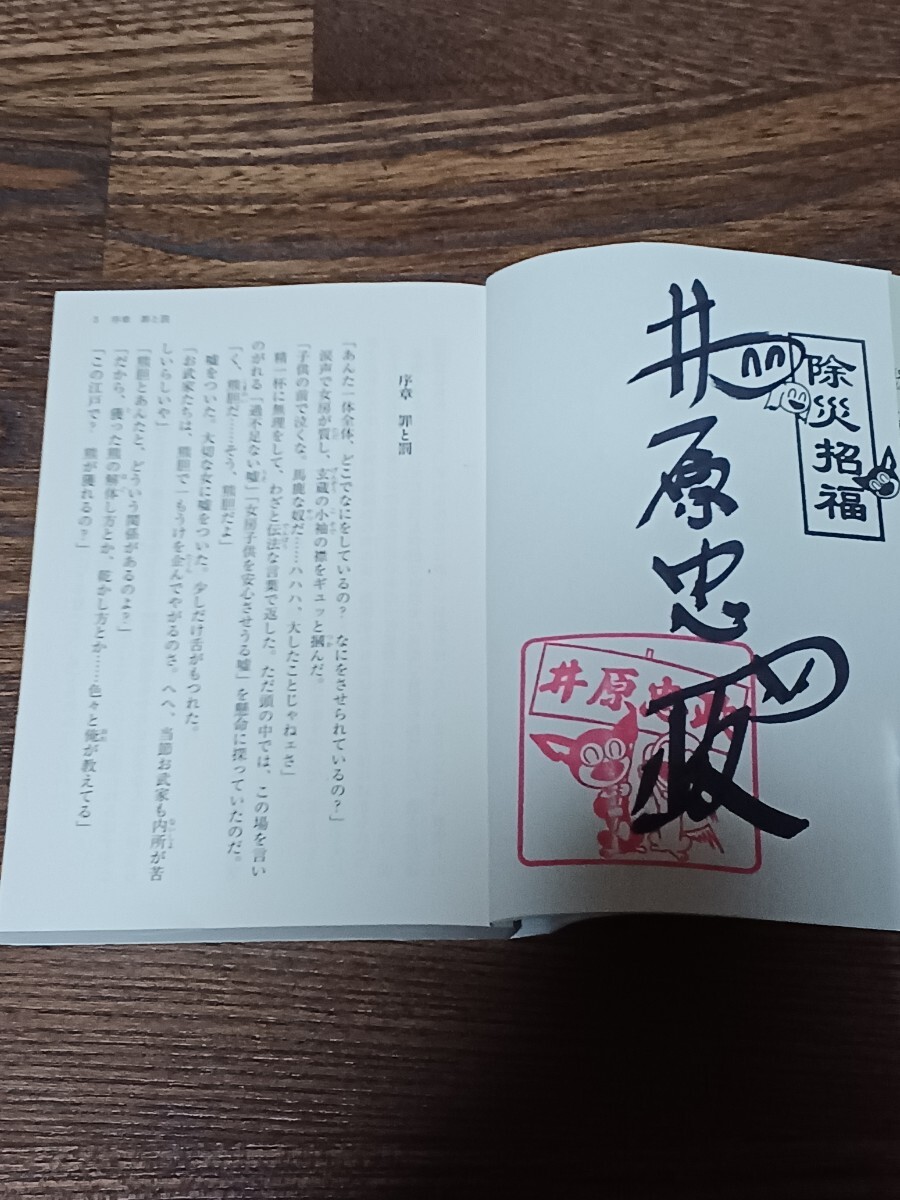 除災招福
井原忠政
井原忠政
5 序章 罪と罰
序章 罪と罰
「あんた一体全体、どこでなにをしているの? なにをさせられているの?」
涙声で女房が質し、玄蔵の小袖の襟をギュッと摑んだ。
「子供の前で泣くな、馬鹿な奴だ……ハハハ、大したことじゃねェさ」
精一杯に無理をして、わざと伝法な言葉で返した。ただ頭の中では、この場を言い
のがれる「過不足ない嘘」「女房子供を安心させうる嘘」を懸命に探っていたのだ。
「く、熊胆だ……そう、熊胆だよ」
嘘をついた。大切な女に嘘をついた。少しだけ舌がもつれた。
「お武家たちは、熊胆で一もうけを企んでやがるのさ。へへ、当節お武家も内所が苦
しいらしいや」
「熊胆とあんたと、どういう関係があるのよ?」
「だから、獲った熊の解体し方とか、乾かし方とか……色々と俺が教えてる」
「この江戸で? 熊が獲れるの?」